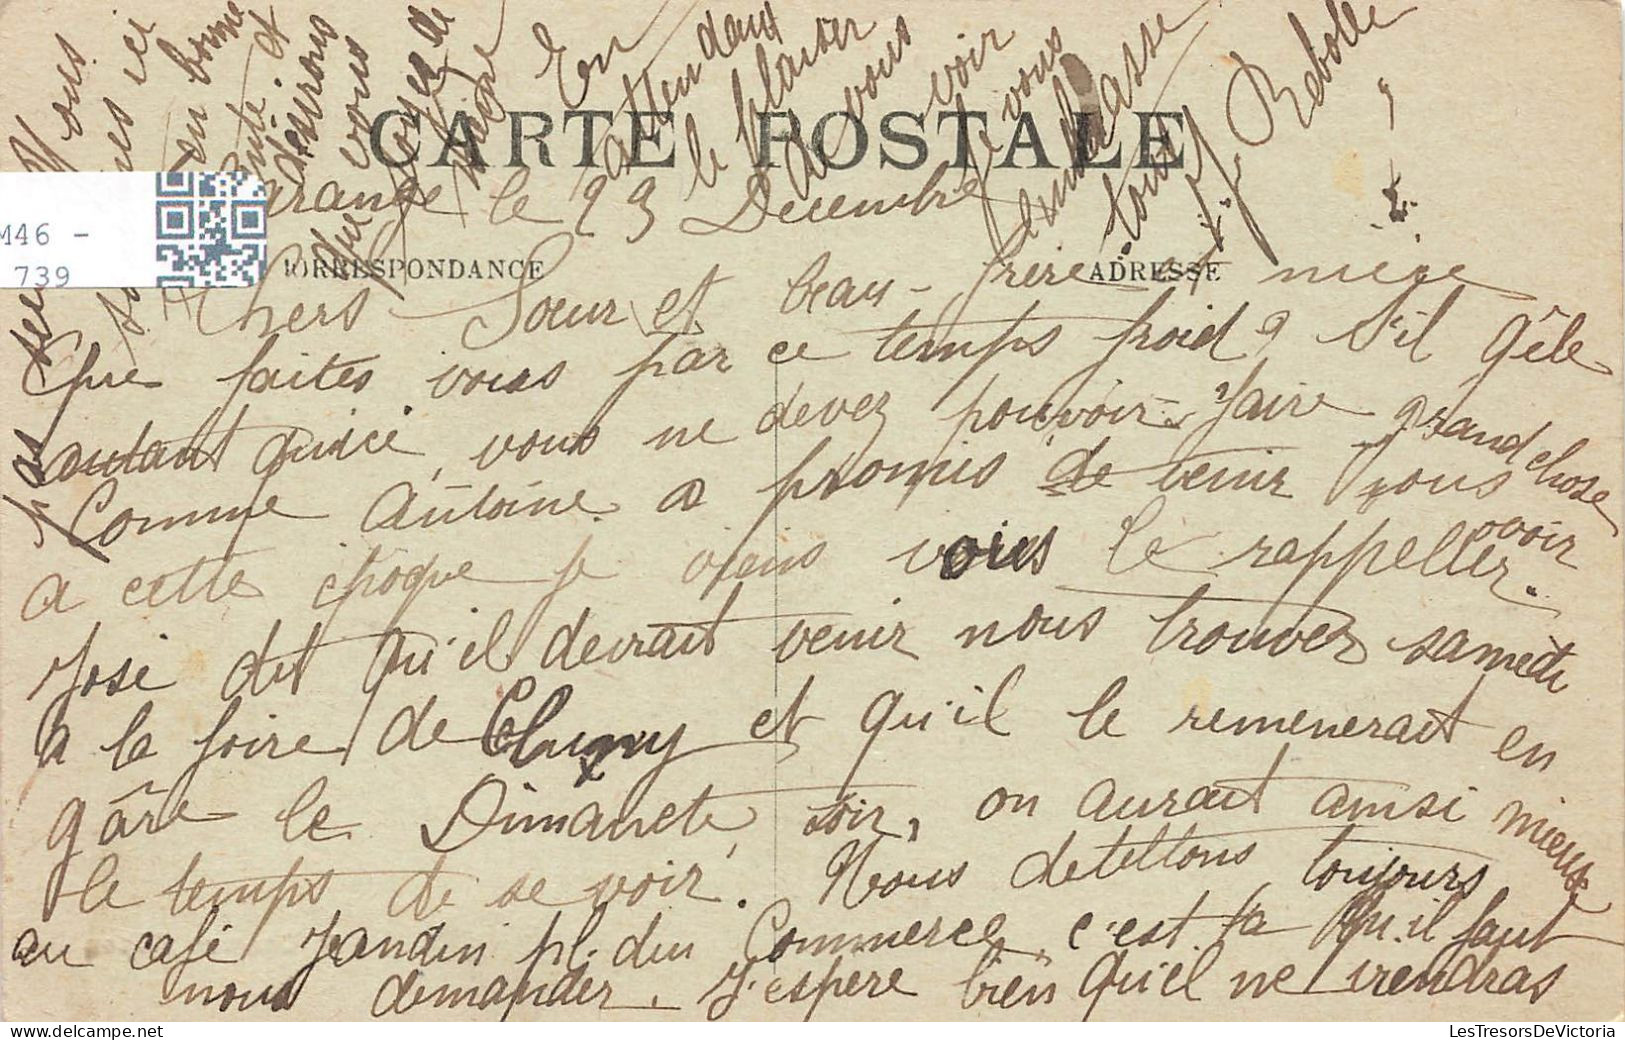 CARTE POSTALE
CORRESPONDANCE
ADRESSE
M46 -
739
range le 23 Decembre
Chers Sœur et beau-frère et nièce
Que faites vous par ce temps froid? s'il gêle
autant qu'ici, vous ne devez pouvoir faire grand chose
Comme Antoine a promis de venir vous voir
a cette époque je viens vous le rappeller.
José dit qu'il devrait venir nous trouver samedi
a la foire de Cluny et qu'il le remenerait en
gâre le Dimanche soir, on aurait ainsi mieux
le temps de se voir. Nous detellons toujours
au café Jandin pl. du Commerce, c'est la qu'il faut
nous demander. J'espère bien qu'el ne viendras
pas seul
Nous sommes ici
en bonne
santé et
désirons
que vous
soyez de
même
En
attendant
le plaisir
de vous
voir
je vous
embrasse
tous
J. Rebolle
LesTresorsDeVictoria